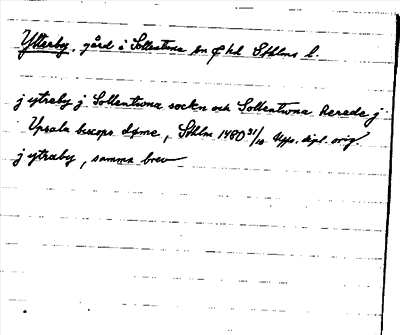 Ytterby, gård i Sollentuna sn o hd Sthlms l.
j ytraby j Sollentwna sockn och Sollentwna herede j
Upsala biscops døme, Sthlm 1480 31/10 Upps. dipl. orig.
j ytraby, samma brev